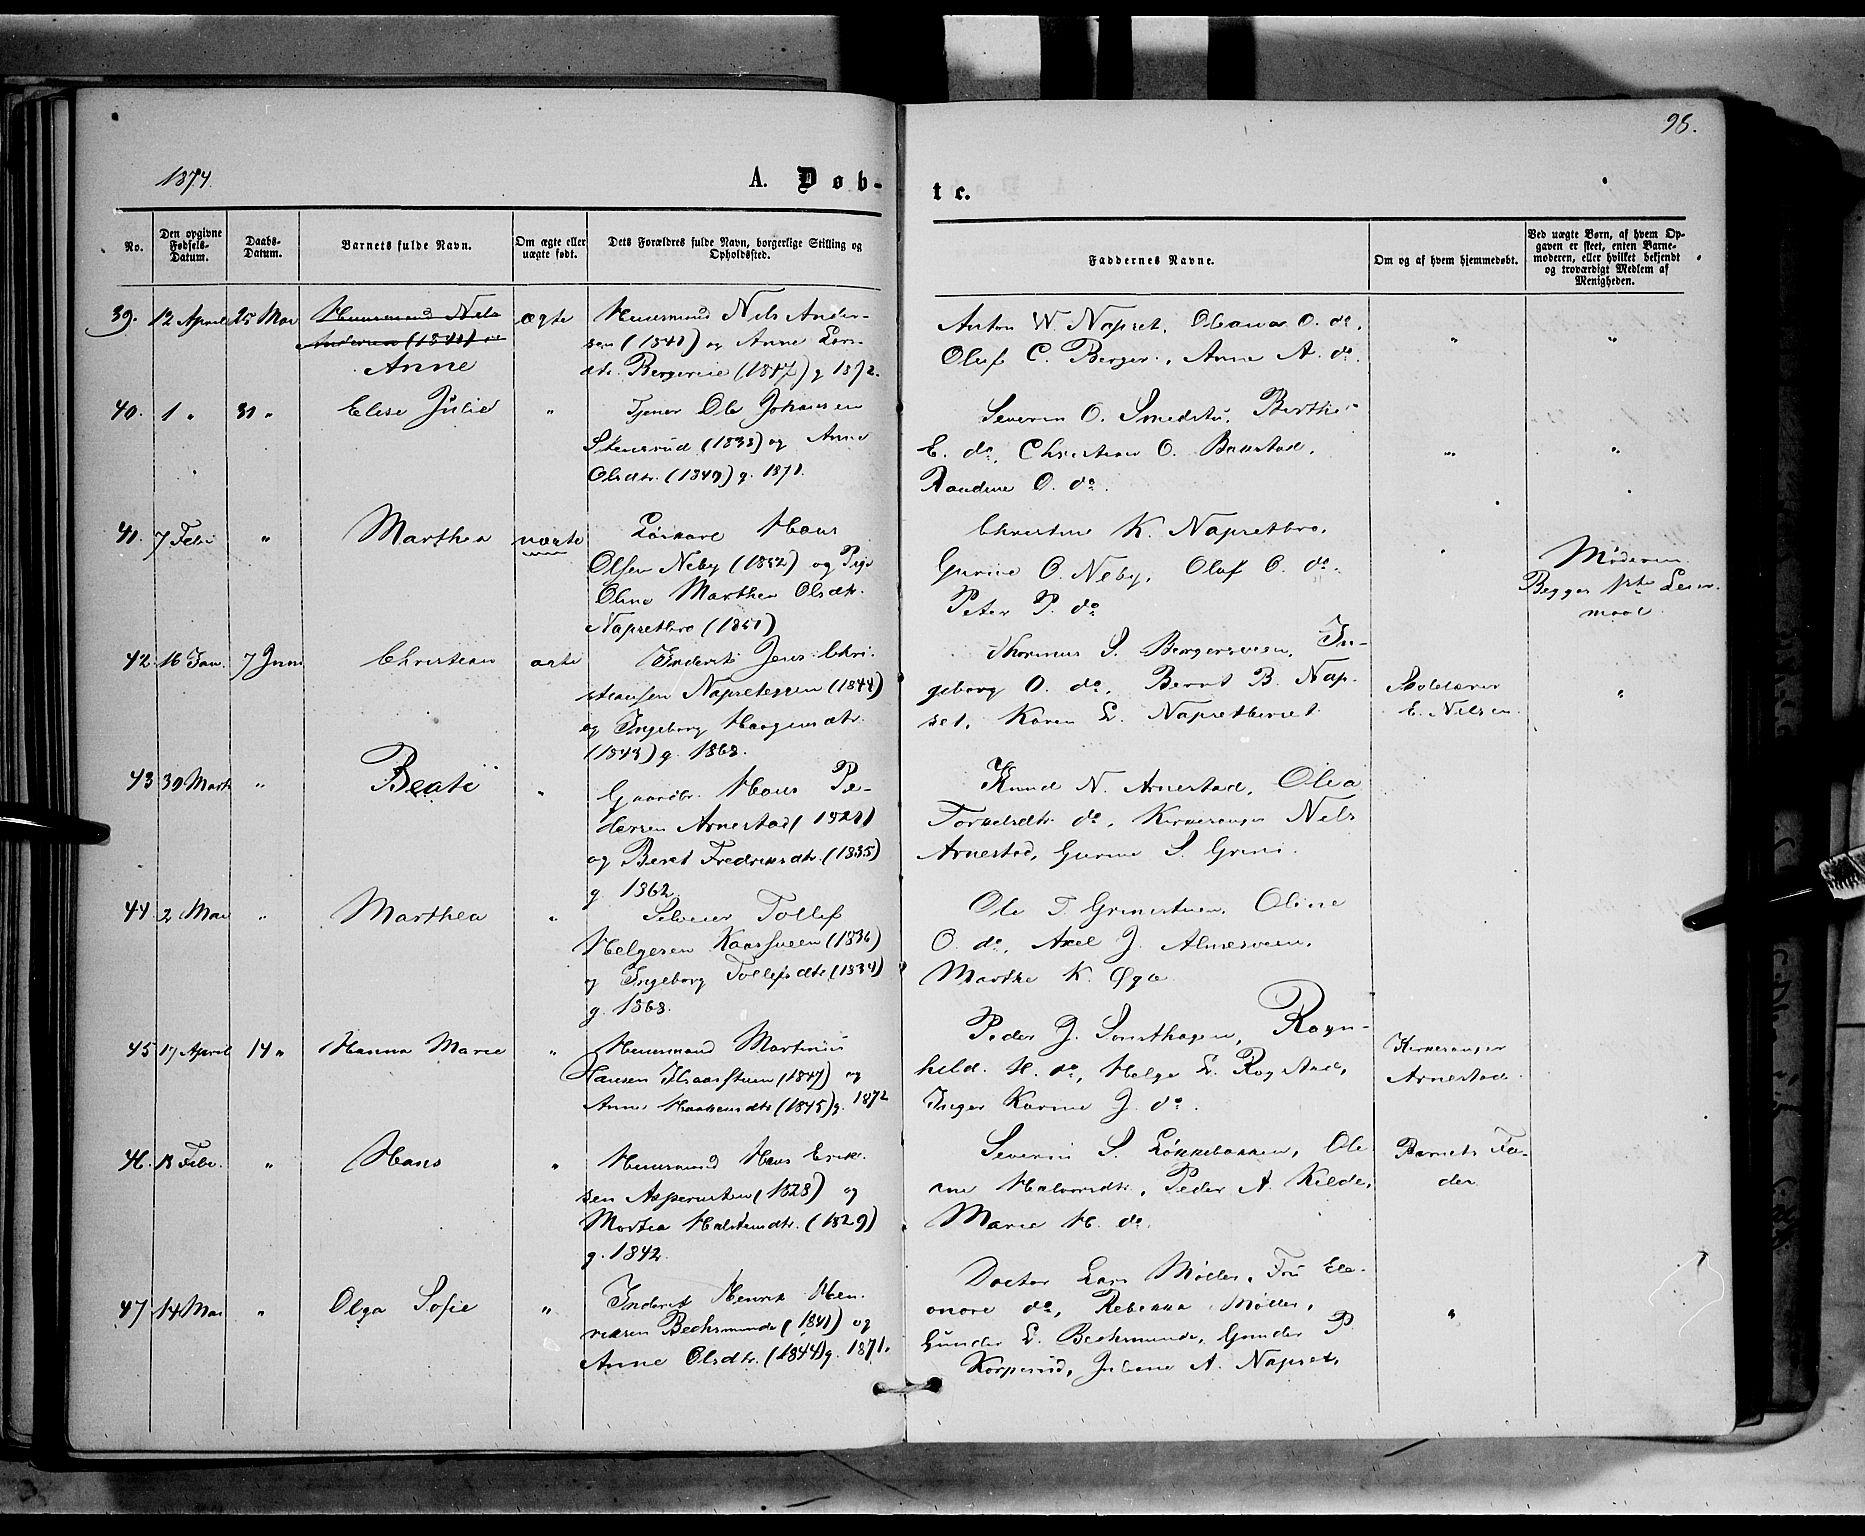 98.
1874.
A. Døb-
te.
No.
Den opgivne Fødsels-Datum.
Daabs-Datum.
Barnets fulde Navn.
Om ægte eller uægte født.
Dets Forældres fulde Navn, borgerlige Stilling og Opholdssted.
Faddernes Navne.
Om og af hvem hjemmedøbt.
Ved uægte Børn, af hvem Opgaven er skeet, enten Barnemoderen, eller hvilket bekjendt og troværdigt Medlem af Menigheden.
39. 12 April 25 Mai Huusmand Nels ægte Huusmand Nels Ander-
Andersen (1840) og sen (1840) og Anne Lars-
Anne dtr. Bergereie (1847) g 1872.
Anton W. Napset, O. do,
Oluf C. Berger, Anne A. do " "
40. 1 " 31 " Elise Julie " Tjener Ole Johansen
Stensrud (1838) og Anne
Olsdtr. (1849) g. 1871.
Severin O. Smedstu, Berthe
E. do, Christian O. Bakstad,
Randine O. do. " "
41. 7 Feb " Marthea uægte Løskarl Hans
Olsen Neby (1852) og Pige
Oline Marthea Olsdtr.
Napsetbro (1851)
Christine K. Napsetbro,
Gurine O. Neby, Oluf O. do.
Peter P. do
Moderen
Begges 1ste Leier-
maal.
42. 16 Jan. 7 Juni Christian ægte Inderst Jens Chri-
stiansen Napseteggen (1844)
og Ingeborg Haagensdtr.
(1843) g. 1868.
Thorinus S. Bergersveen, In-
geborg O. do, Bernt B. Nap-
set, Karen L. Napset
Skolelærer
E. Nilsen. "
43 30 Marts " Beate " Gaardbr. Hans Pe-
dersen Arnestad (1821)
og Beret Fredriksdtr. (1835)
g. 1862.
Knud N. Arnestad, Olea
Torkelsdtr. do, Kirkesanger Nels
Arnestad, Gurine S. Grini.
44. 2 Mai " Marthea " Selveier Tollef
Helgesen Kaassveen (1836)
og Ingeborg Tollefsdtr (1834)
g. 1868.
Ole T. Grinestuen, Oline
O. do, Axel J. Almesveen,
Marthe K. Øga
45 17 April 14 " Hanna Marie " Huusmand Martinus
Hansen (1847) og
Anne Haakensdtr (1845) g. 1872
Peder J. Sørsthagen, Ragn-
hild. H. do, Helge L. Rogstad,
Inger Karine J. do.
Kirkesanger
Arnestad.
46. 18 Feb. " Hans " Huusmand Hans Erik-
sen (1828) og
Martea Halstendtr. (1829)
g. 1842.
Severin S. Løkkebakken, Ole
ane Halvorsdtr, Peder A. Kilde,
Marie H. do.
Barnets Fa-
der
47 14 Mai " Olga Sofie " Inderst Henrik Hen-
riksen Bechsmunde (1841) og
Anne Olsdtr. (1844) g. 1871.
Doctor Lars Møller, Fru Ele-
onore do, Rebekka Møller,
Gunder L. Bechsmunde, Gunder P.
Korperud, Juliane A. Napset, "